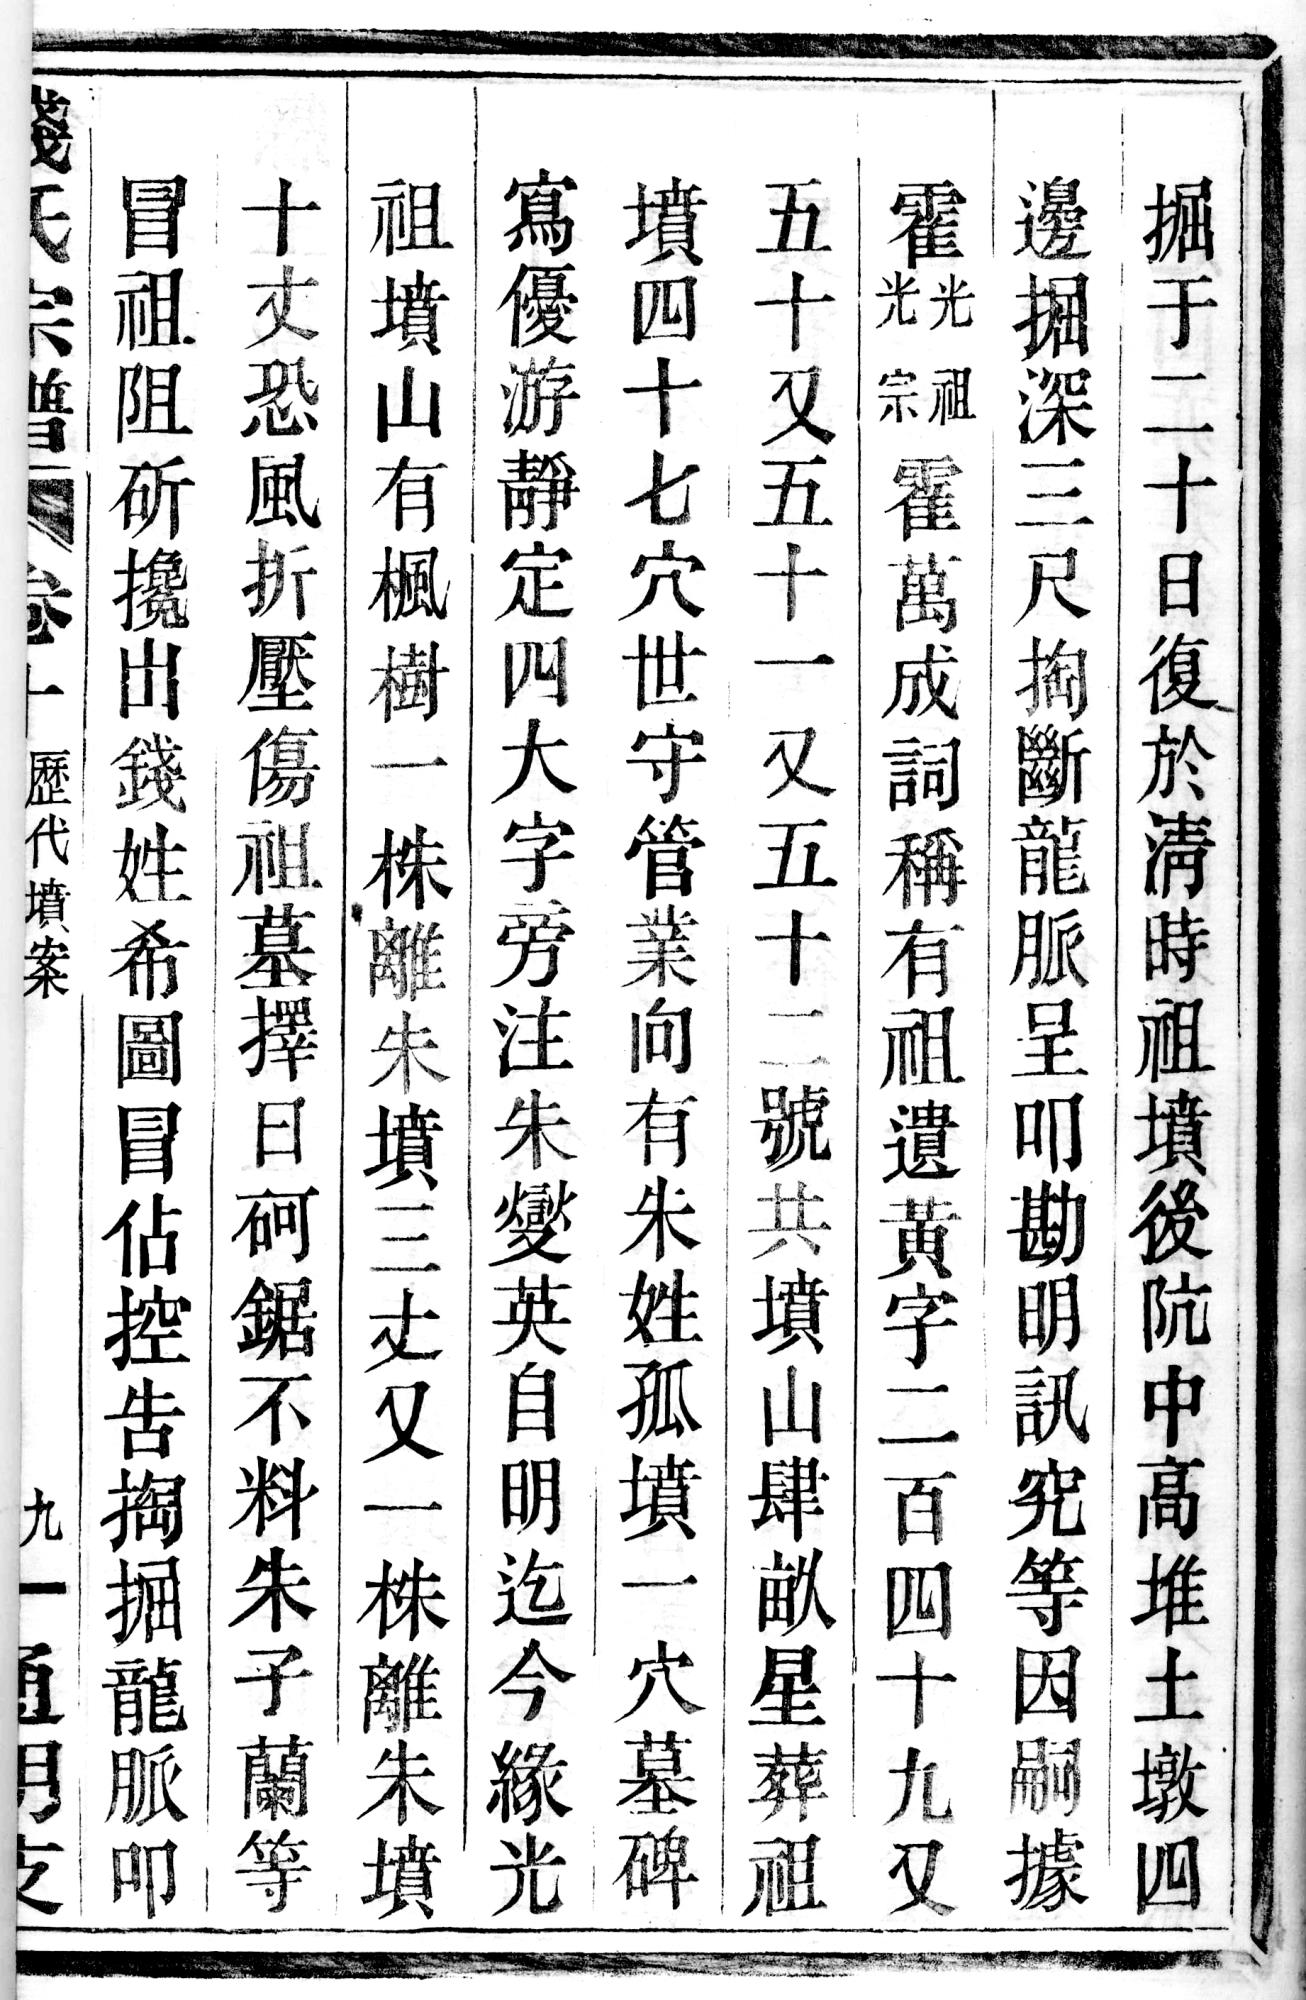 掘于二十日復於淸時祖墳後阬中高堆土墩四
邊掘深三尺掏斷龍脈呈叩勘明訊究等因嗣據
霍光祖光宗霍萬成詞稱有祖遺黃字二百四十九又
五十又五十一又五十二號共墳山肆畝星葬祖
墳四十七穴世守管業向有朱姓孤墳一穴墓碑
寫優游靜定四大字旁注朱燮英自明迄今緣光
祖墳山有楓樹一株離朱墳三丈又一株離朱墳
十丈恐風折壓傷祖墓擇日砢鋸不料朱子蘭等
冒祖阻斫攙出錢姓希圖冒佔控告掏掘龍脈叩
錢氏宗譜 卷十 歷代墳案 九 一 通明支